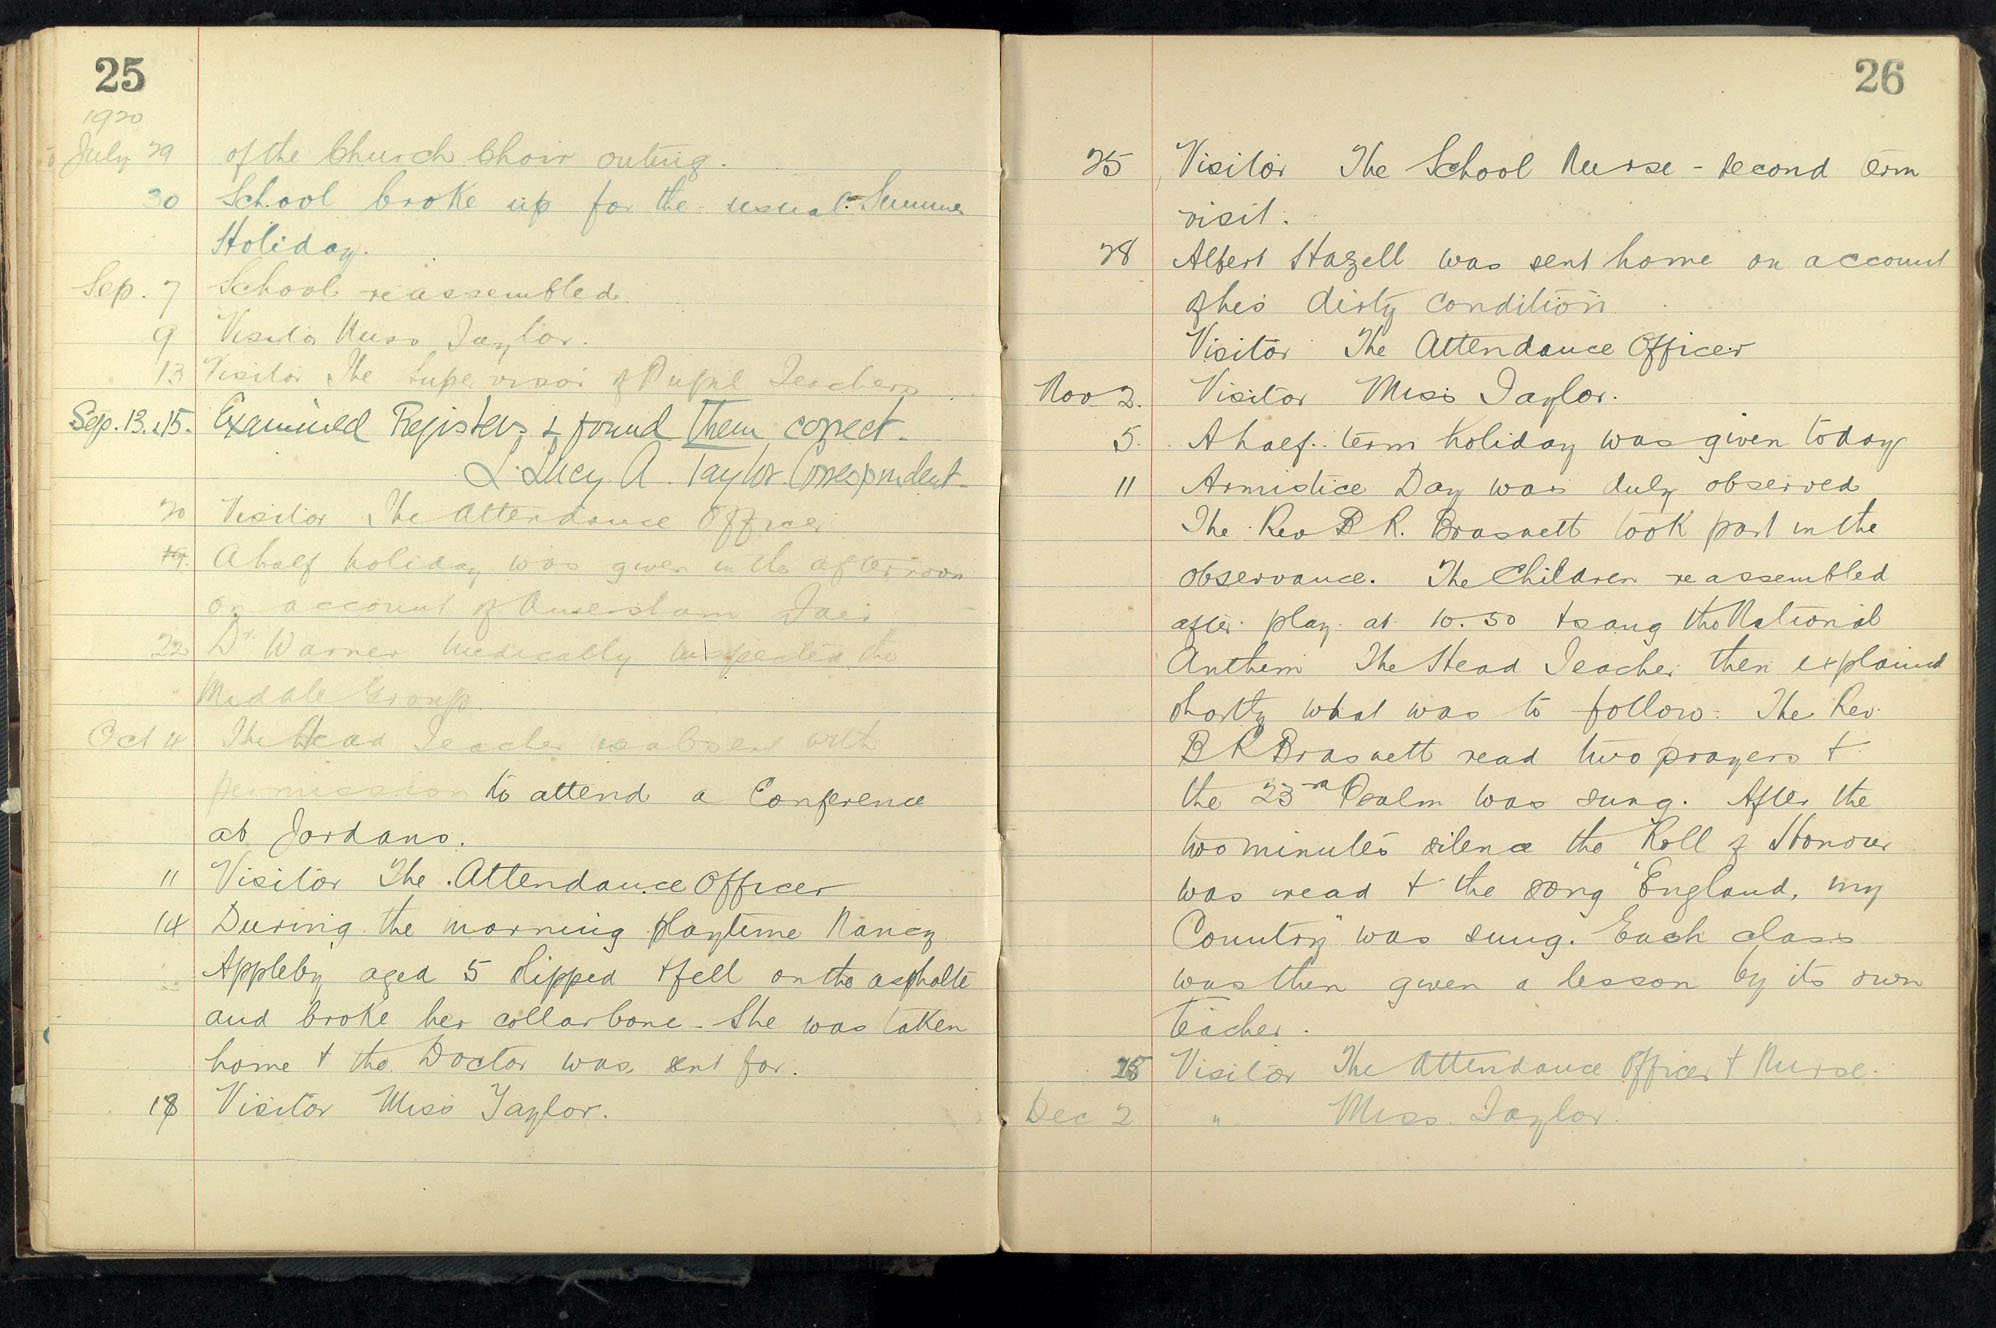 25
1920
July 29 of the Church Choir outing.
30 School broke up for the usual Summer
Holiday.
Sep. 7 School reassembled.
9 Visitor Miss Taylor.
13 Visitor The Supervisor of Pupil Teachers
Sep. 13. & 15. Examined Registers & found them correct.
L. Lucy A. Taylor. Correspondent.
20 Visitor The Attendance Officer
A half holiday was given in the afternoon
on account of Amersham Fair
22 Dr. Warner medically inspected the
Middle Group.
Oct 4 The Head Teacher absent with
permission to attend a Conference
at Jordans.
11 Visitor The Attendance Officer
14 During the morning playtime Nancy
Appleby aged 5 slipped & fell on the asphalte
and broke her collarbone. She was taken
home & the Doctor was sent for.
18 Visitor Miss Taylor.
26
25 Visitor The School Nurse - second term
visit.
28 Albert Hazell was sent home on account
of his dirty condition
Visitor The Attendance Officer
Nov 2. Visitor Miss Taylor.
5. A half term holiday was given today
11 Armistice Day was duly observed
The Rev B R. Brasnett took part in the
observance. The Children reassembled
after play at 10.50 & sang the National
Anthem The Head Teacher then explained
shortly what was to follow. The Rev.
B R Brasnett read two prayers &
the 23rd Psalm was sung. After the
two minutes silence the Roll of Honour
was read & the song "England, my
Country" was sung. Each class
was then given a lesson by its own
teacher.
Visitor The Attendance Officer & Nurse.
Dec 2 " Miss Taylor.